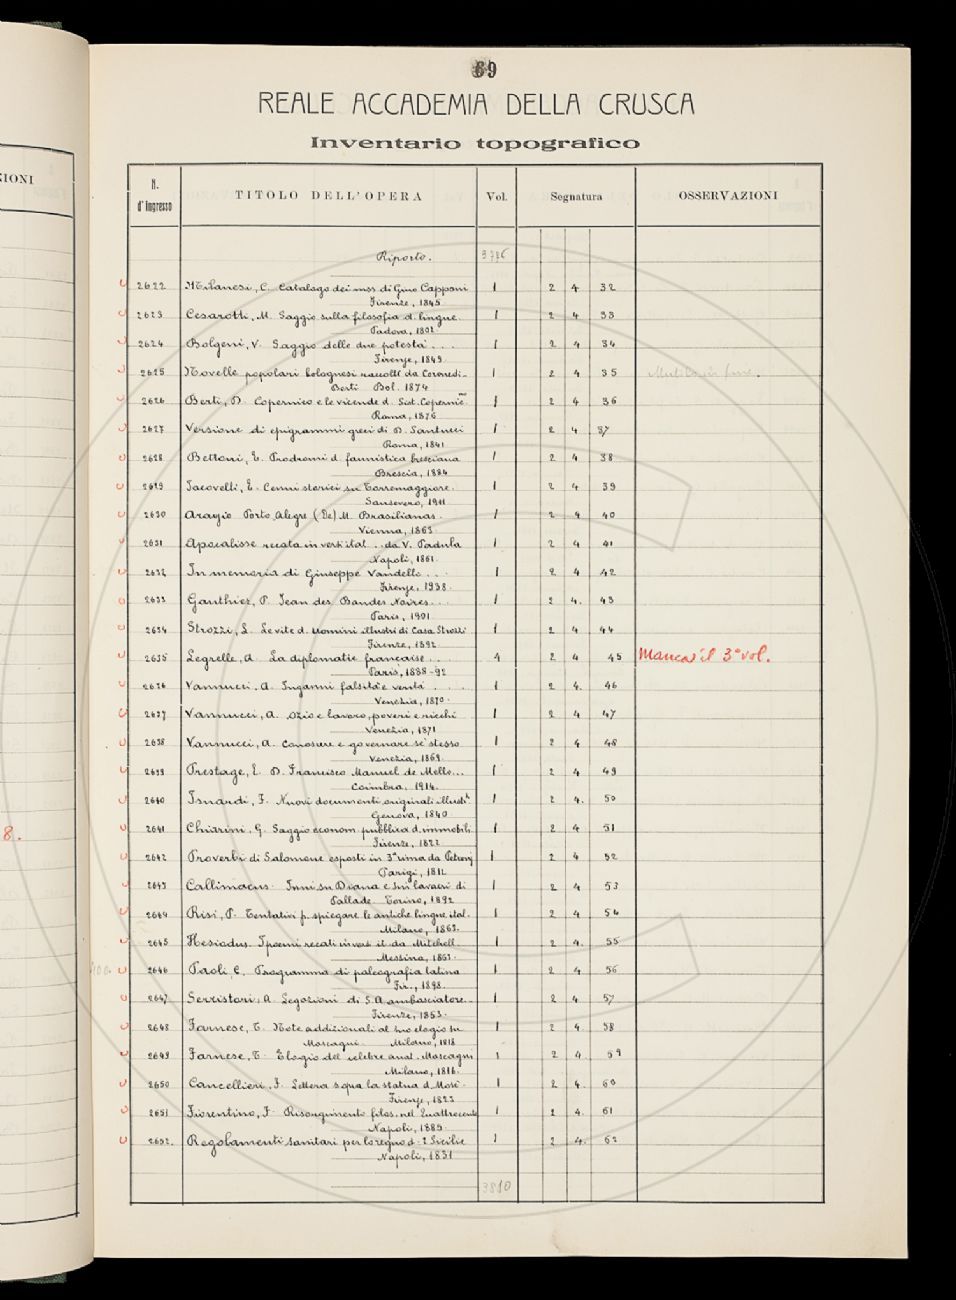 69
REALE ACCADEMIA DELLA CRUSCA
Inventario topografico
ZIONI
N. d'Ingresso TITOLO DELL'OPERA Vol. Segnatura OSSERVAZIONI
Riporto. 3776
2622 Milanesi, C. Catalogo dei mss di Gino Capponi 1 2 4 32
Firenze, 1845
2623 Cesarotti, M. Saggio sulla filosofia d. lingue. 1 2 4 33
Padova, 1802
2624 Bolgeni, V. Saggio delle due potestà . . . 1 2 4 34
Firenze, 1849.
2625 Novelle popolari bolognesi raccolte da Coronedi- 1 2 4 35 Mutilo in fine.
Berti Bol. 1874
2626 Berti, D. Copernico e le vicende d. Sist. Copernic.no 1 2 4 36
Roma, 1876
2627 Versione di epigrammi greci di D. Santucci 1 2 4 37
Roma, 1841
2628 Bettoni, E. Prodromi d. faunistica bresciana 1 2 4 38
Brescia, 1884
2629 Iacovelli, E. Cenni storici su Torremaggiore. 1 2 4 39
Sansevero, 1911
2630 Araujo Porto Alegre (De) M. Brasilianas. 1 2 4 40
Vienna, 1863.
2631 Apocalisse recata in versi ital . . da V. Padula 1 2 4 41
Napoli, 1861.
2632 In memoria di Giuseppe Vandelli . . . 1 2 4 42
Firenze, 1938.
2633 Gauthiez, P. Jean des Bandes Noires. . . 1 2 4. 43
Paris, 1901
2634 Strozzi, L. Le vite d. uomini illustri di Casa Strozzi 1 2 4 44
Firenze, 1892
2635 Legrelle, A. La diplomatie française . . . 4 2 4 45 Manca il 3° vol.
Paris, 1888-92
2636 Vannucci, A. Inganni falsità e verità . . . . 1 2 4. 46
Venezia, 1870.
2637 Vannucci, A. Ozio e lavoro, poveri e ricchi 1 2 4 47
Venezia, 1871
2638 Vannucci, A. Conoscere e governare se stesso 1 2 4 48
Venezia, 1869.
2639 Prestage, E. D. Francisco Manuel de Mello... 1 2 4 49
Coimbra, 1914.
2640 Isnardi, F. Nuovi documenti originali illustr. 1 2 4. 50
Genova, 1840.
8.
2641 Chiarini, G. Saggio econom. pubblica d. immobili. 1 2 4 51
Firenze, 1822
2642 Proverbi di Salomone esposti in 3ª rima da Petroni 1 2 4 52
Parigi, 1812
2643 Callimacus. Inni su Diana e sui lavacri di 1 2 4 53
Pallade Torino, 1892
2644 Risi, P. Tentativi p. spiegare le antiche lingue ital. 1 2 4 54
Milano, 1863.
2645 Hesiodus. I poemi recati in versi it. da Mitchell 1 2 4. 55
Messina, 1863.
2646 Paoli, C. Programma di paleografia latina 1 2 4 56
Fir., 1898.
2647 Serristori, A. Legazioni di S.A. ambasciatore. 1 2 4 57
Firenze, 1853.
2648 Farnese, T. Note addizionali al suo elogio su 1 2 4. 58
Mascagni. Milano, 1818
2649 Farnese, T. Elogio del celebre anat. Mascagni 1 2 4. 59
Milano, 1816.
2650 Cancellieri, F. Lettera sopra la statua d. Mosè. 1 2 4. 60
Firenze, 1823
2651 Fiorentino, F. Risorgimento filos. nel Quattrocento 1 2 4. 61
Napoli, 1885.
2652. Regolamenti sanitari per lo regno d. 2 Sicilie 1 2 4. 62
Napoli, 1831
3810